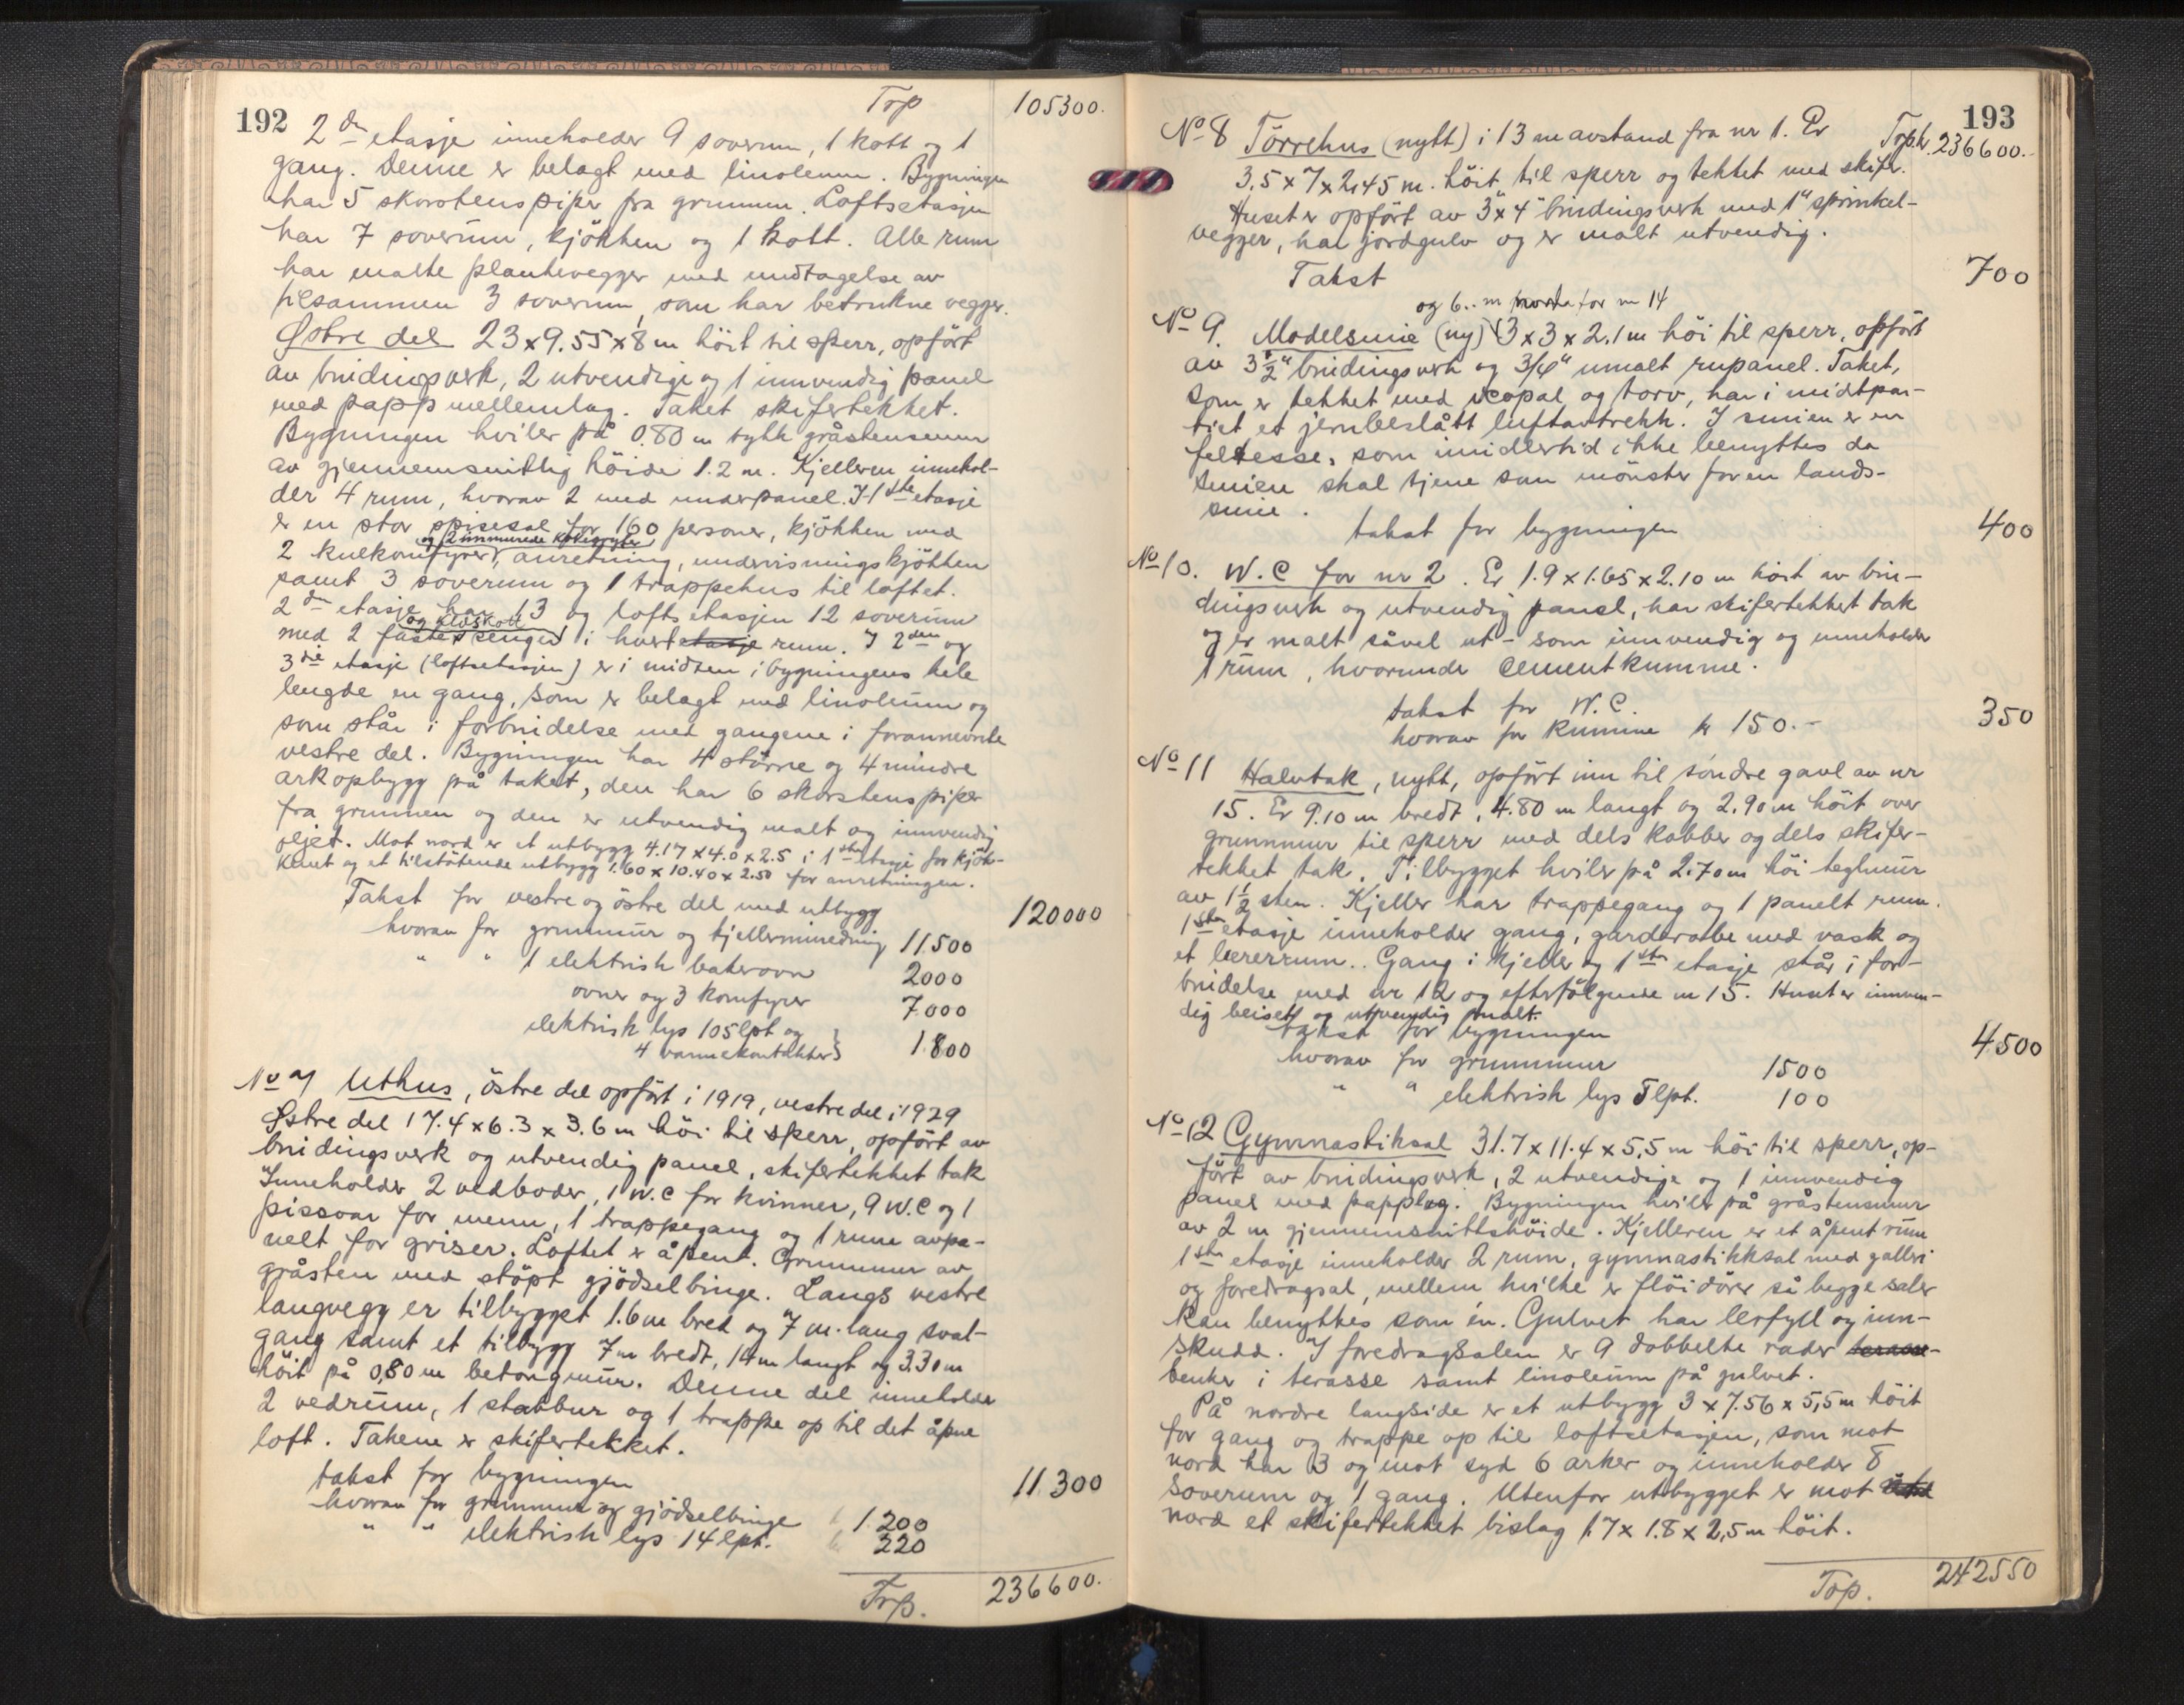 192
Trp 105300.
2den etasje inneholder 9 soverum, 1 kott og 1
gang. Denne er belagt med linoleum. Bygningen
har 5 skorstenspiper fra grunnen. Loftsetasjen
har 7 soverum, kjökken og 1 kott. Alle rum
har malte plankevegger med undtagelse av
tilsammen 3 soverum, som har betrukne vegger.
Østre del 23 x 9.55 x 8 m höit til sperr, opfört
av bindingsverk, 2 utvendige og 1 innvendig panel
med papp mellemlag. Taket skifertekket.
Bygningen hviler på 0.80 m tykk gråstensmur
av gjennemsnitlig höide 1.2 m. Kjelleren innehol-
der 4 rum, hvorav 2 med underpanel. I 1ste etasje
er en stor spisesal for 160 personer, kjökken med
og 2 innmurede kokegryter
2 kulkomfyrer, anretning, undervisningskjökken
samt 3 soverum og 1 trappehus til loftet.
2den etasje har 13 og loftsetasjen 12 soverum
og klæskott
med 2 faste senger i hvert etasje rum. I 2den og
3die etasje (loftsetasjen) er i midten i bygningens hele
lengde en gang, som er belagt med linoleum og
som står i forbindelse med gangene i forannevnte
vestre del. Bygningen har 4 större og 4 mindre
arkopbygg på taket, den har 6 skorstenspiper
fra grunnen og den er utvendig malt og innvendig
oljet. Mot nord er et utbygg 4.17 x 4.0 x 2.5 i 1ste etasje for kjök-
kenet og et tilstötende utbygg 1.60 x 10.40 x 2.50 for anretningen.
Takst for vestre og östre del med utbygg 120000
hvorav for grunnmur og kjellerinnredning 11500
" " 1 elektrisk bakerovn 2000
ovner og 3 komfyrer 7000
elektrisk lys 105 lpt og
4 varmekontakter } 1.800
No 7 Uthus, östre del opfört i 1919, vestre del i 1929
Østre del 17.4 x 6.3 x 3.6 m höi til sperr, opfört av
bindingsverk og utvendig panel, skifertekket tak
Inneholder 2 vedboder, 1 W.C for kvinner, 9 W.C og 1
pissoar for menn, 1 trappegang og 1 rum avpa-
nelt for griser. Loftet er åpent. Grunnmur av
gråsten med stöpt gjödselbinge. Langs vestre
langvegg er tilbygget 1.6 m bred og 7 m. lang sval-
gang samt et tilbygg 7 m bredt, 14 m langt og 3.30 m
höit på 0,80 m betongmur. Denne del inneholder
2 vedrum, 1 stabbur og 1 trappe op til det åpne
loft. Takene er skifertekket.
takst for bygningen 11.300
hvorav for grunnmur og gjödselbinge 1.200
" " elektrisk lys 14 lpt. 220
Trp. 236600.
193
Trp. kr. 236600.-
No 8 Törrehus (nytt) i 13 m avstand fra nr 1. Er
3,5 x 7 x 2,45 m. höit til sperr og tekket med skifer.
Huset er opfört av 3" x 4" bindingsverk med 1" sprinkel-
vegger, har jordgulv og er malt utvendig.
Takst 700
og 6.. m norda for nr 14
No 9. Modelsmie (ny) 3 x 3 x 2.1 m höi til sperr, opfört
av 3 1/2" bindingsverk og 3/4" umalt rupanel. Taket,
som er tekket med icopal og torv, har i midtpar-
tiet et jernbeslått luftavtrekk. I smien er en
feltesse, som imidlertid ikke benyttes da
smien skal tjene som mönster for en lands-
smie.
takst for bygningen 400
No 10. W.C for nr 2. Er 1.9 x 1.65 x 2.10 m höit av bin-
dingsverk og utvendig panel, har skifertekket tak
og er malt såvel ut- som innvendig og inneholder
1 rum, hvorunder cementkumme.
takst for W.C. 350
hvorav for kumme kr 150.-
No 11 Halvtak, nytt, opfört inn til söndre gavl av nr
15. Er 9.10 m bredt, 4.80 m langt og 2.90 m höit over
grunnmur til sperr med dels kobber og dels skifer-
tekket tak. Tilbygget hviler på 2.70 m höi teglmur
av 1 1/2 sten. Kjeller har trappegang og 1 panelt rum.
1ste etasje inneholder gang, garderobe med vask og
et lærerrum. Gang i kjeller og 1ste etasje står i for-
bindelse med nr 12 og efterfölgende nr 15. Huset er innven-
dig beiset og utvendig malt.
takst for bygningen 4500
hvorav for grunnmur 1500
" " elektrisk lys 5 lpt. 100
No 12 Gymnastiksal 31.7 x 11.4 x 5,5 m höi til sperr, op-
fört av bindingsverk, 2 utvendige og 1 innvendig
panel med papplag. Bygningen hviler på gråstensmur
av 2 m gjennemsnittshöide. Kjelleren er et åpent rum
1ste etasje inneholder 2 rum, gymnastikksal med galleri
og foredragsal, mellem hvilke er flöidörer så begge saler
kan benyttes som én. Gulvet har lerfyll og inn-
skudd. I foredragsalen er 9 dobbelte rader
benker i terasse samt linoleum på gulvet.
På nordre langside er et utbygg 3 x 7.56 x 5,5 m höit
for gang og trappe op til loftsetasjen, som mot
nord har 3 og mot syd 6 arker og inneholder 8
soverum og 1 gang. Utenfor utbygget er mot
nord et skifertekket bislag 1.7 x 1.8 x 2,5 m höit.
Trp. 242550